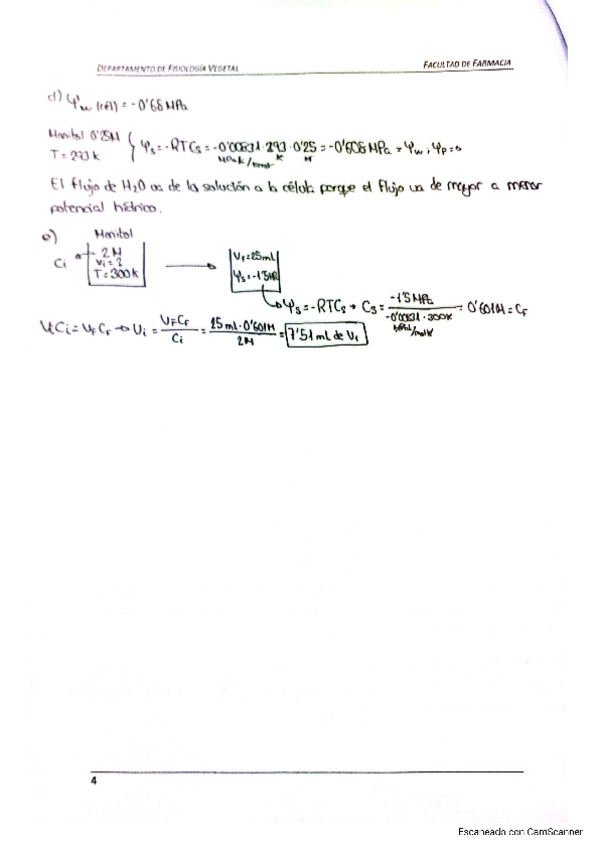 DEPARTAMENTO DE FISIOLOGÍA VEGETAL FACULTAD DE FARMACIA
d) Ψw (cél) = -0'68 MPa
Manitol 0'25M
T = 293 K
Ψs = -RTCs = -0'00831 · 293 · 0'25 = -0'608 MPa = Ψw ; Ψp = 0
K M
El flujo de H2O va de la solución a la célula porque el flujo va de mayor a menor
potencial hídrico.
e) Manitol
Ci → 2 M
Vi = ?
T = 300 K
Vf = 25 mL
Ψs = -1'5 MPa
Ψs = -RTCs → Cs = -1'5 MPa / -0'00831 · 300K = 0'601M = Cf
ViCi = VfCf → Vi = VfCf / Ci = 25 ml · 0'601M / 2M = 7'51 ml de Vi
4
Escaneado con CamScanner